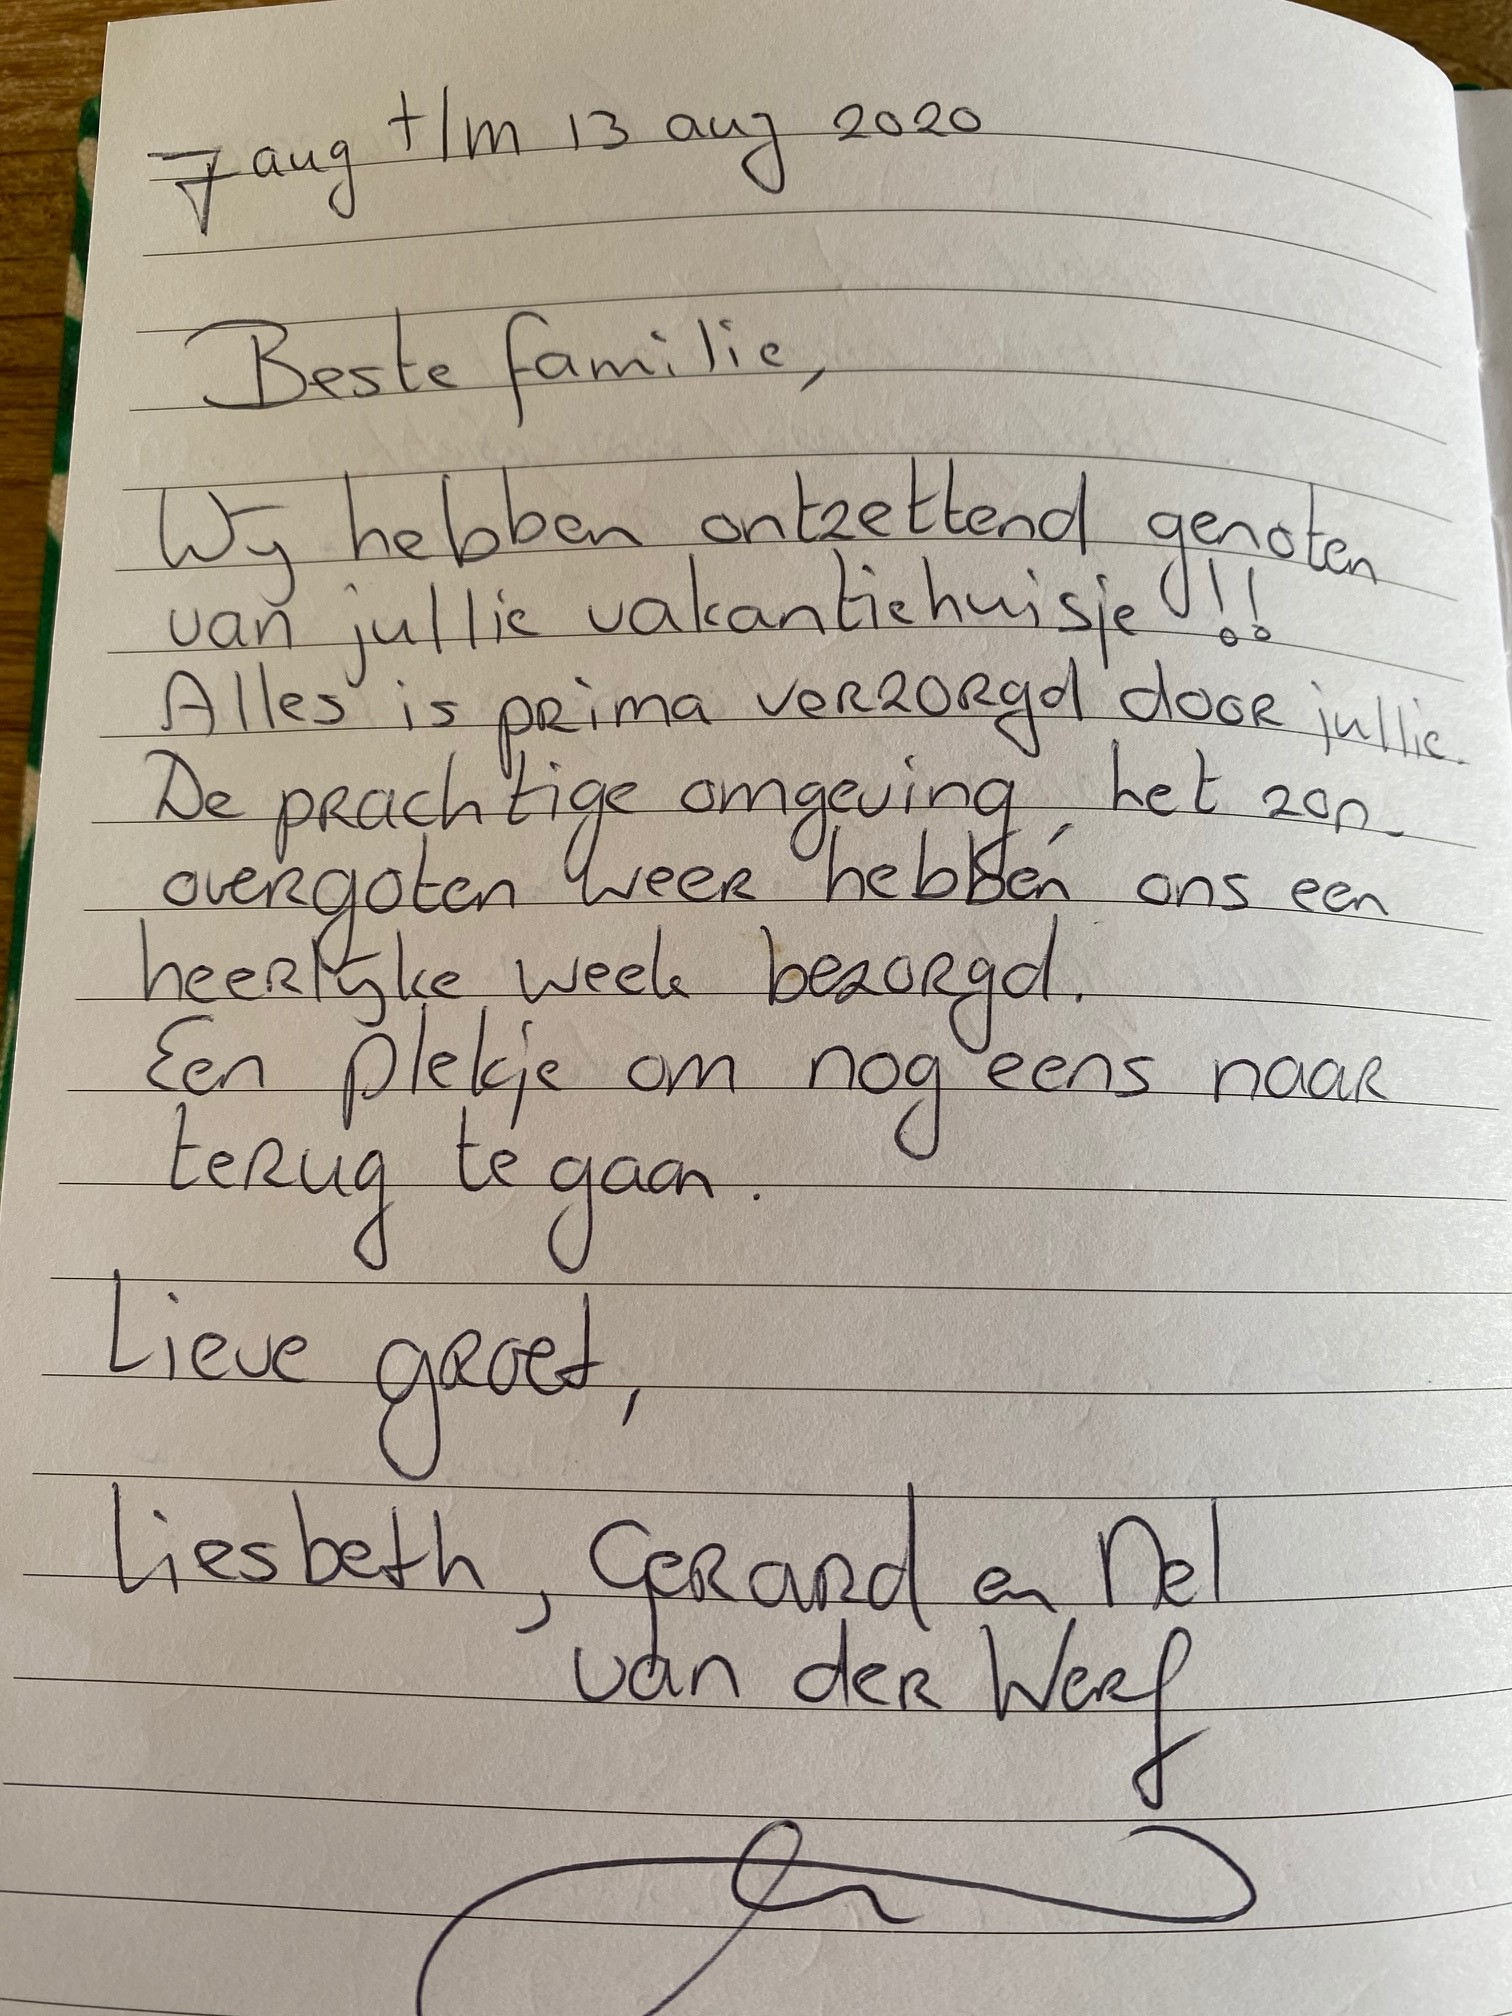 7 aug t/m 13 aug 2020
Beste familie,
Wij hebben ontzettend genoten
van jullie vakantiehuisje!!
Alles is prima verzorgd door jullie.
De prachtige omgeving, het zon-
overgoten weer hebben ons een
heerlijke week bezorgd.
Een plekje om nog eens naar
terug te gaan.
Lieve groet,
Liesbeth, Gerard en Nel
van der Werf